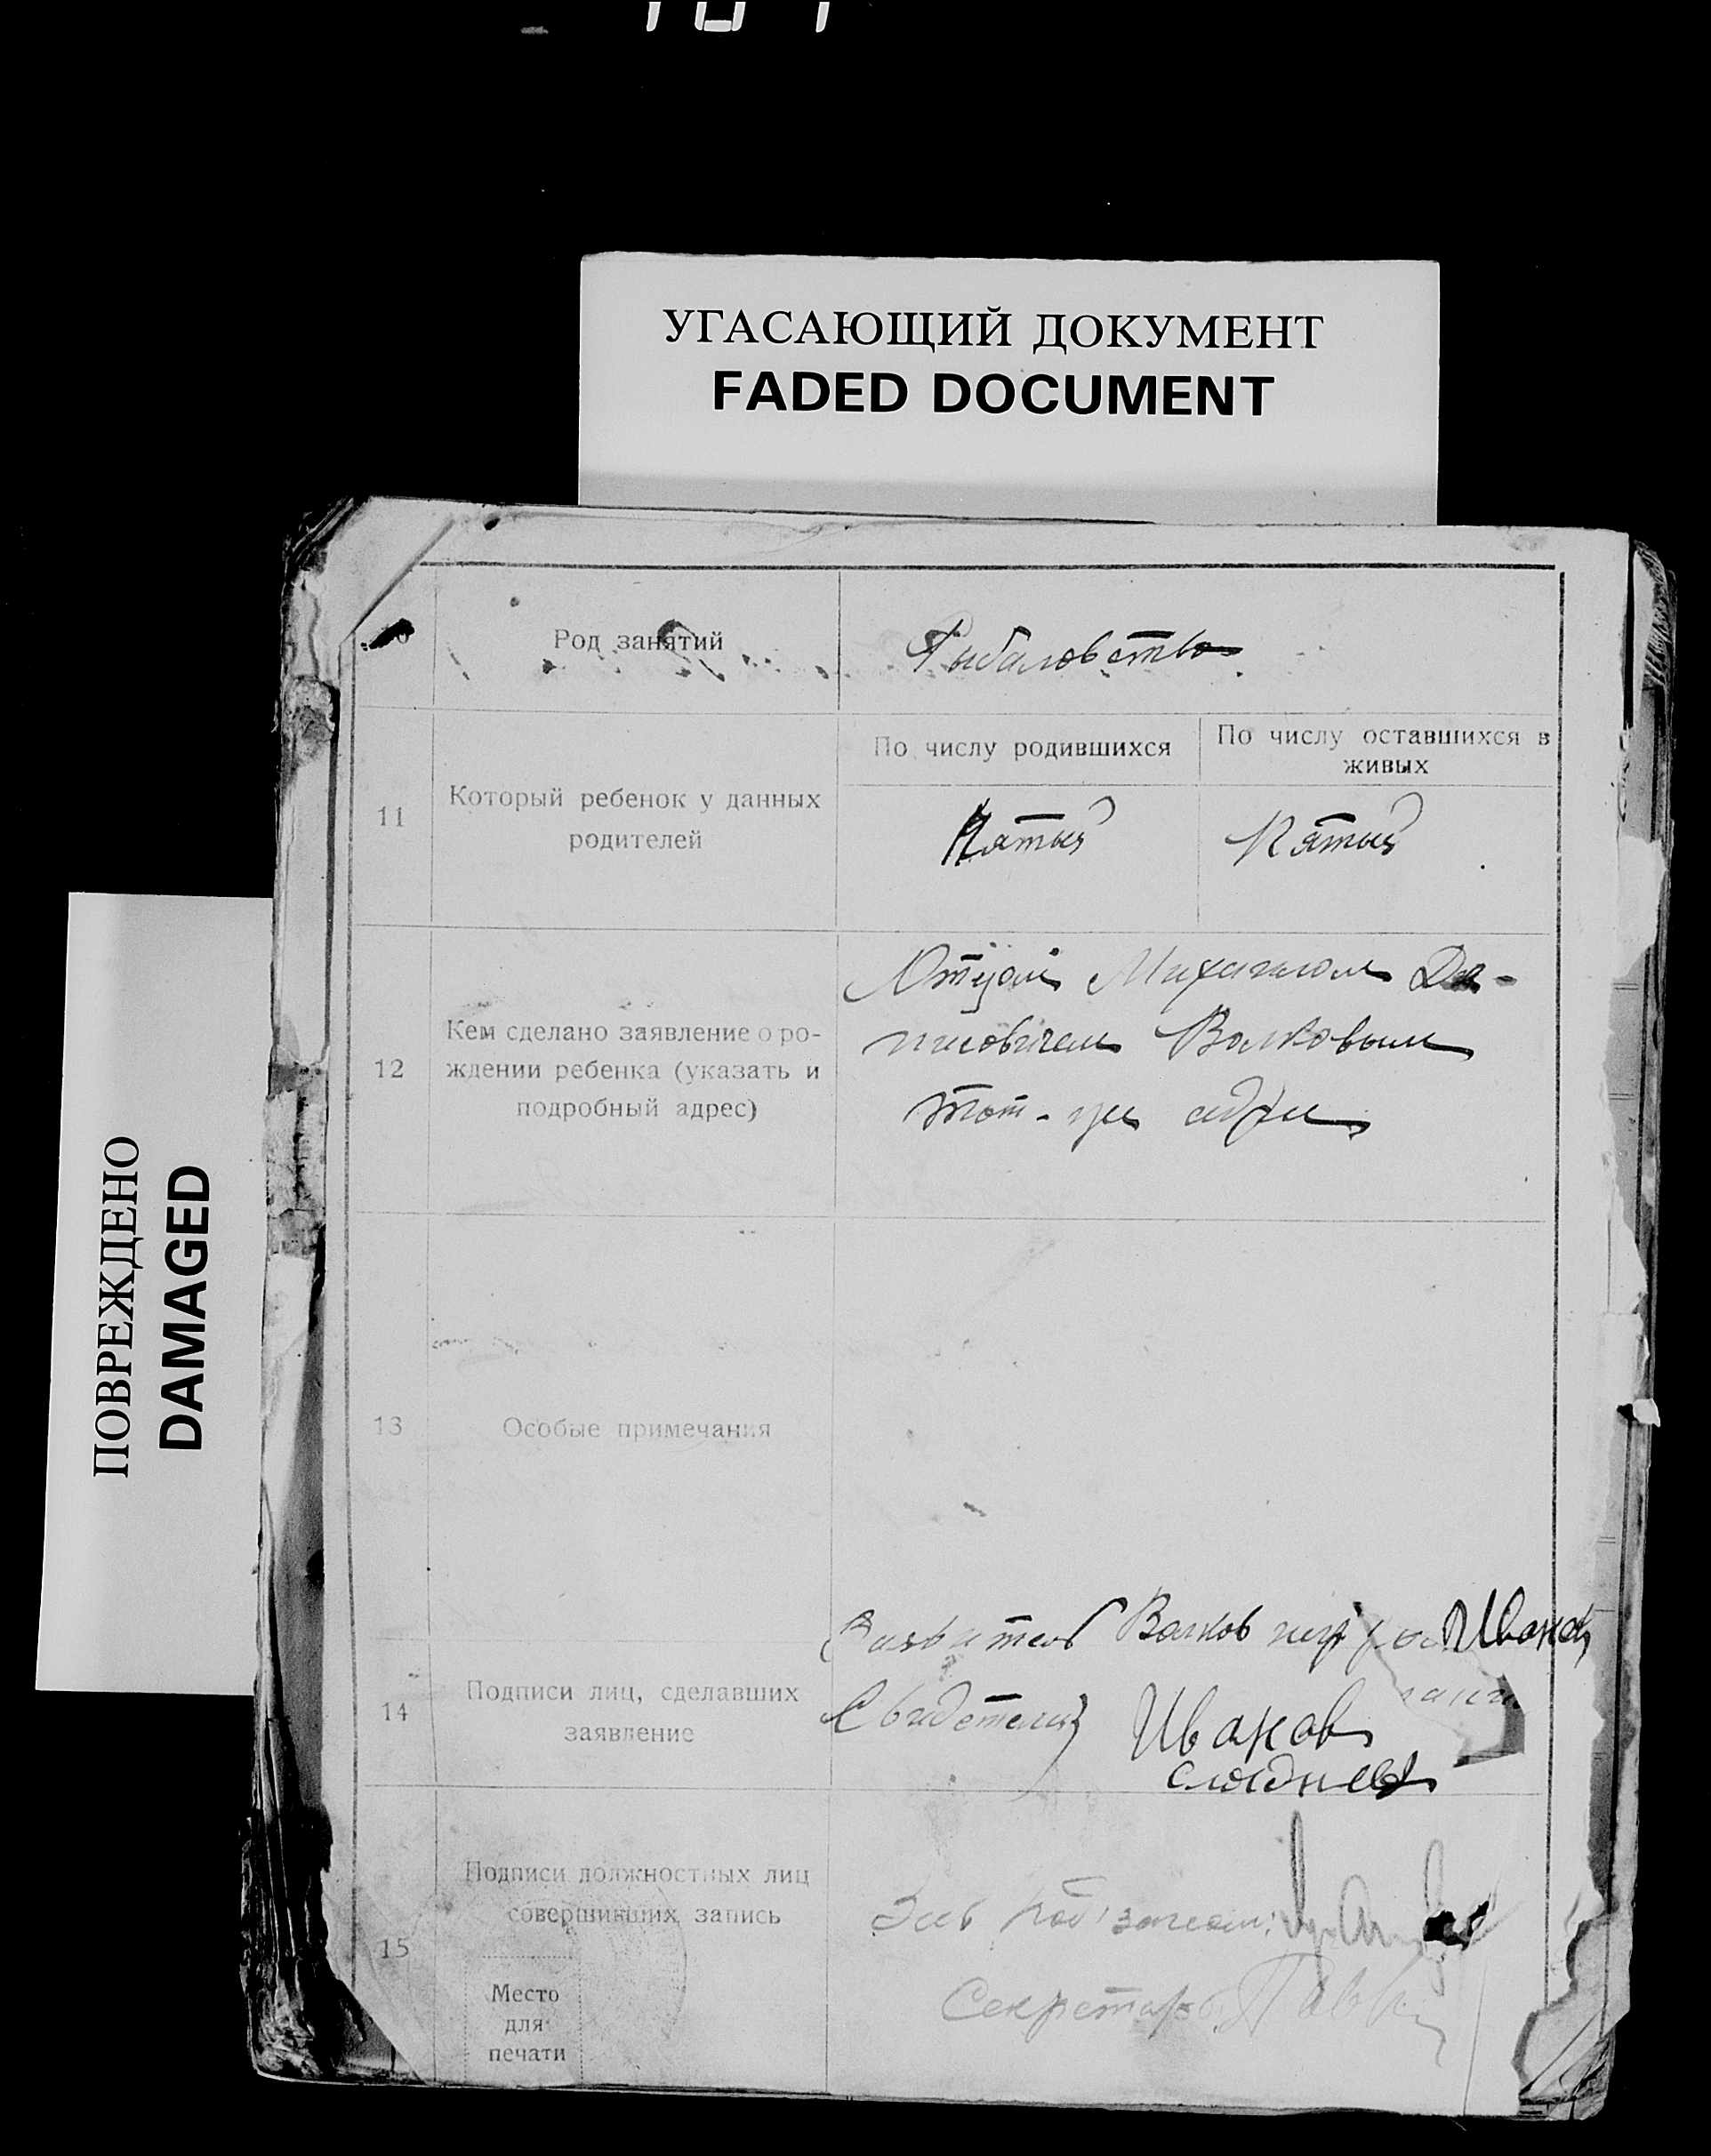 УГАСАЮЩИЙ ДОКУМЕНТ
FADED DOCUMENT
ПОВРЕЖДЕНО
DAMAGED
Род занятий
Рыболовство
11
Который ребенок у данных
родителей
По числу родившихся
По числу оставшихся в
живых
Пятый
Пятый
12
Кем сделано заявление о ро-
ждении ребенка (указать и
подробный адрес)
Отцом Михаилом
Волковым
тот-же
13
Особые примечания
14
Подписи лиц, сделавших
заявление
Волков Иванов
Свидетели Иванов
15
Подписи должностных лиц
совершивших запись
Место
для
печати
Секретарь